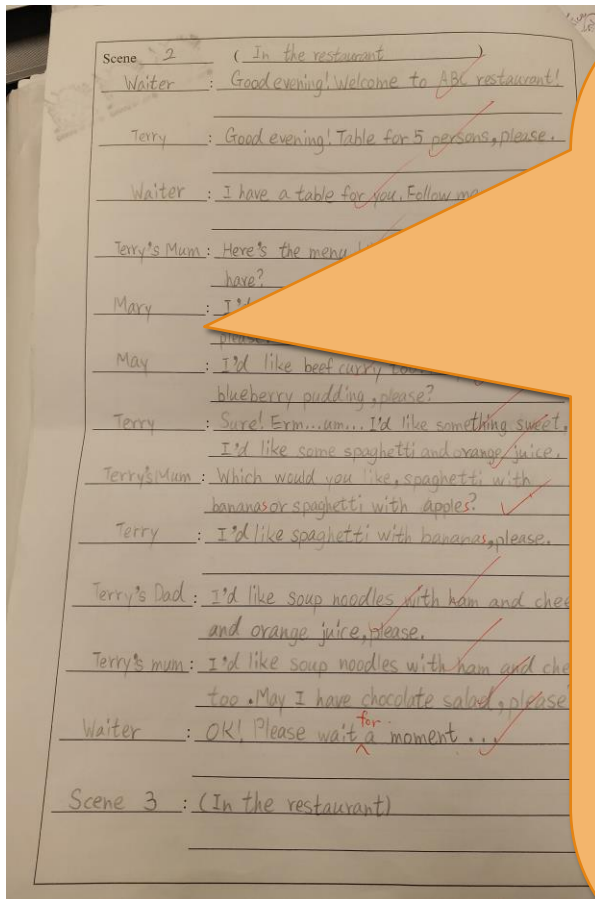 Scene 2 ( In the restaurant )
Waiter : Good evening! Welcome to ABC restaurant!
Terry : Good evening! Table for 5 persons, please.
Waiter : I have a table for you. Follow me
Terry's Mum : Here's the menu
have?
Mary : I'd
please.
May : I'd like beef curry
blueberry pudding, please?
Terry : Sure! Erm...um... I'd like something sweet,
I'd like some spaghetti and orange juice.
Terry's Mum : Which would you like, spaghetti with
bananas or spaghetti with apples?
Terry : I'd like spaghetti with bananas, please.
Terry's Dad : I'd like soup noodles with ham and chee
and orange juice, please.
Terry's mum : I'd like soup noodles with ham and che
too. May I have chocolate salad, please
for
Waiter : OK! Please wait a moment ...
Scene 3 : (In the restaurant)